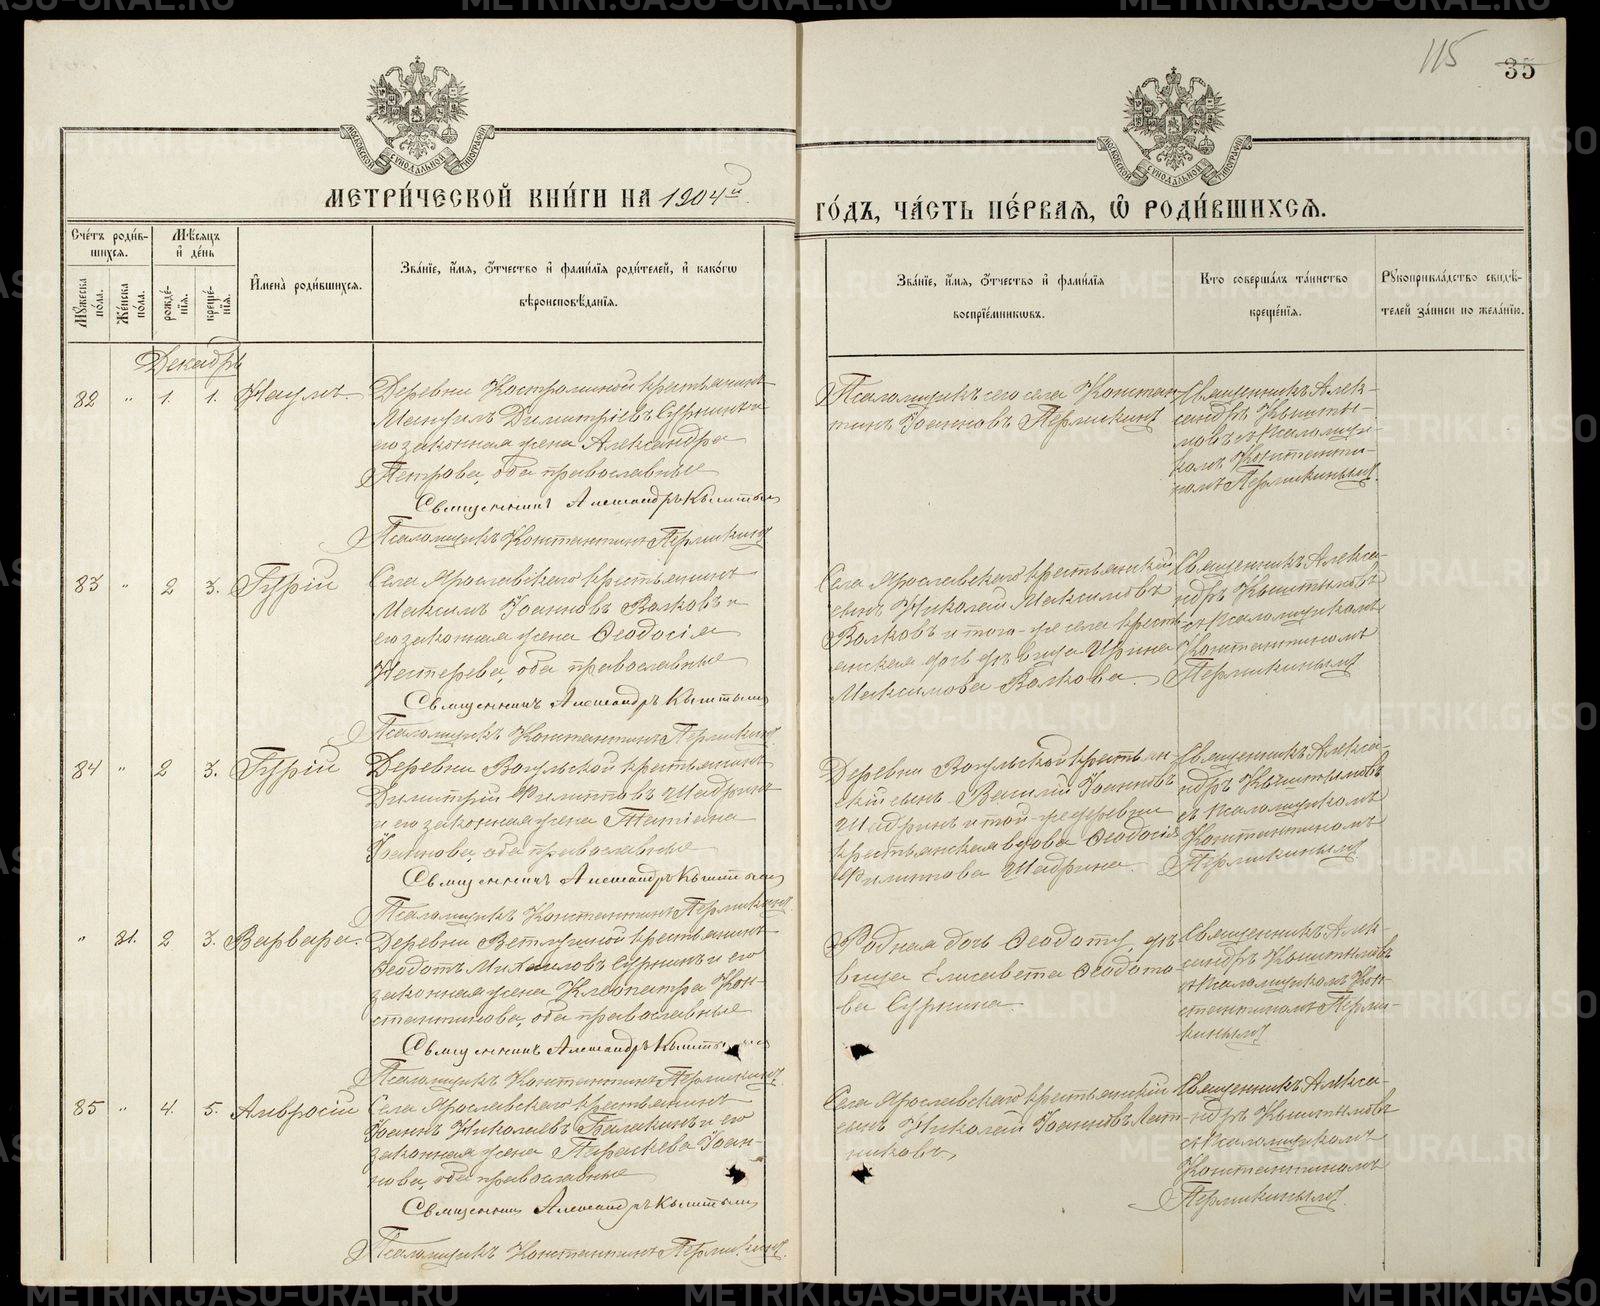 115
35
МОСКОВСКОЙ СѴНОДАЛЬНОЙ ТИПОГРАФІИ
МОСКОВСКОЙ СѴНОДАЛЬНОЙ ТИПОГРАФІИ
МЕТРИ́ЧЕСКОЙ КНИ́ГИ НА 1904й
ГО́ДЪ, ЧА́СТЬ ПЕ́РВАЯ, Ѡ РОДИ́ВШИХСЯ.
Сче́тъ роди́в-
шихся.
Мꙋ́жеска по́ла.
Же́нска по́ла.
Мѣ́сяцъ
и де́нь
рожде́-
нїя.
креще́-
нїя.
Имена̀ роди́вшихся.
Зва́нїе, и́мя, ѻ́тчество и фами́лїя роди́телей, и како́гѡ
вѣроисповѣ́данїя.
Зва́нїе, и́мя, ѻ́тчество и фами́лїя
воспрїе́мниковъ.
Кто соверша́лъ та́инство
креще́нїя.
Рꙋкоприкла́дство свидѣ́-
телей за́писи по жела́нїю.
Декабрь
82 " 1. 1. Наумъ.
Деревни Костроминой крестьянинъ
Мануилъ Димитріевъ Сурнинъ и
его законная жена Александра
Петрова, оба православные
Священникъ Александръ Кыштымовъ
Псаломщикъ Константинъ Пермикинъ
Псаломщикъ сего села Констан-
тинъ Іоанновъ Пермикинъ
Священникъ Алек-
сандръ Кышты-
мовъ съ псаломщи-
комъ Константи-
номъ Пермикинымъ.
83 " 2 3. Гурій
Села Ярославскаго крестьянинъ
Максимъ Іоанновъ Волковъ и
его законная жена Ѳеодосія
Нестерева, оба православные
Священникъ Александръ Кыштымовъ
Псаломщикъ Константинъ Пермикинъ
Села Ярославскаго крестьянскій
сынъ Николай Максимовъ
Волковъ и того-же села кресть-
янская дочь дѣвица Ирина
Максимова Волкова.
Священникъ Алекса-
ндръ Кыштымовъ
съ псаломщикомъ
Константиномъ
Пермикинымъ
84 " 2 3. Гурій
Деревни Вогульской крестьянинъ
Димитрій Филипповъ Шадринъ
и его законная жена Татіана
Іоаннова, оба православные
Священникъ Александръ Кыштымовъ
Псаломщикъ Константинъ Пермикинъ
Деревни Вогульской крестьян-
скій сынъ Василій Іоанновъ
Шадринъ и той-же деревни
крестьянская вдова Ѳеодосія
Филиппова Шадрина.
Священникъ Алекса-
ндръ Кыштымовъ
съ псаломщикомъ
Константиномъ
Пермикинымъ
" 31. 2 3. Варвара.
Деревни Ветлугиной крестьянинъ
Ѳеодотъ Михаиловъ Сурнинъ и его
законная жена Клеопатра Кон-
стантинова, оба православные
Священникъ Александръ Кыштымовъ
Псаломщикъ Константинъ Пермикинъ
Родная дочь Ѳеодота, дѣ-
вица Елисавета Ѳеодото-
ва Сурнина.
Священникъ Алек-
сандръ Кыштымовъ
съ псаломщикомъ Кон-
стантиномъ Перми-
кинымъ
85 " 4. 5. Амвросій
Села Ярославскаго крестьянинъ
Іоаннъ Николаевъ Балакинъ и его
законная жена Параскева Іоан-
нова, оба православные
Священникъ Александръ Кыштымовъ
Псаломщикъ Константинъ Пермикинъ
Села Ярославскаго крестьянскій
сынъ Николай Іоанновъ Лат-
никовъ.
Священникъ Алекса-
ндръ Кыштымовъ
съ псаломщикомъ
Константиномъ
Пермикинымъ.
METRIKI.GASO-URAL.RU